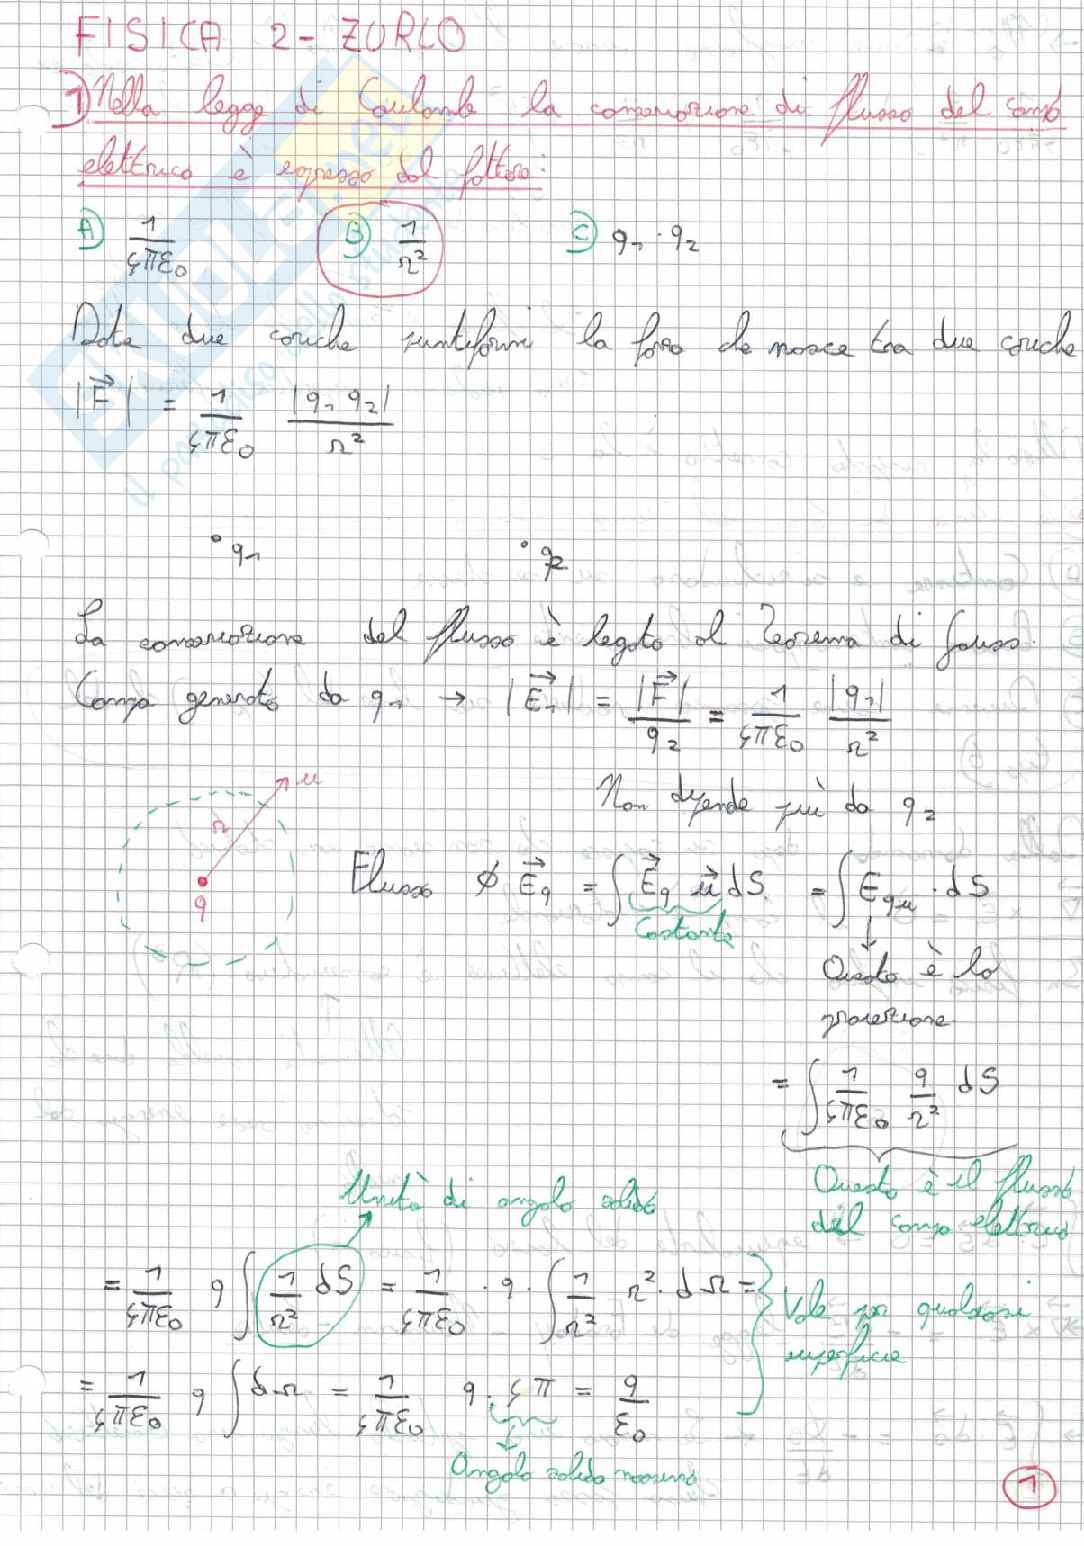 FISICA 2 - ZURLO
1) Nella legge di Coulomb la conservazione di flusso del campo
elettrico è espresso dal fattore:
A) 1/4πε₀ B) 1/r² C) q₁ · q₂
Date due cariche puntiformi la forza che nasce tra due cariche
|F⃗| = 1/4πε₀ |q₁ q₂|/r²
q₁ q₂
La conservazione del flusso è legato al Teorema di Gauss.
Campo generato da q₁ → |E⃗₁| = |F⃗|/q₂ = 1/4πε₀ |q₁|/r²
Non dipende più da q₂
r u
q
Flusso ϕ E⃗q = ∫ E⃗q u⃗ dS = ∫ Equ · dS
Costante
Questa è la
proiezione
= ∫ 1/4πε₀ q/r² dS
Questo è il flusso
del campo elettrico
Unità di angolo solido
= 1/4πε₀ q ∫ 1/r² dS = 1/4πε₀ · q · ∫ 1/r² r² · dΩ =
Vale per qualsiasi
superficie
= 1/4πε₀ q ∫ dΩ = 1/4πε₀ q · 4π = q/ε₀
Angolo solido massimo
1